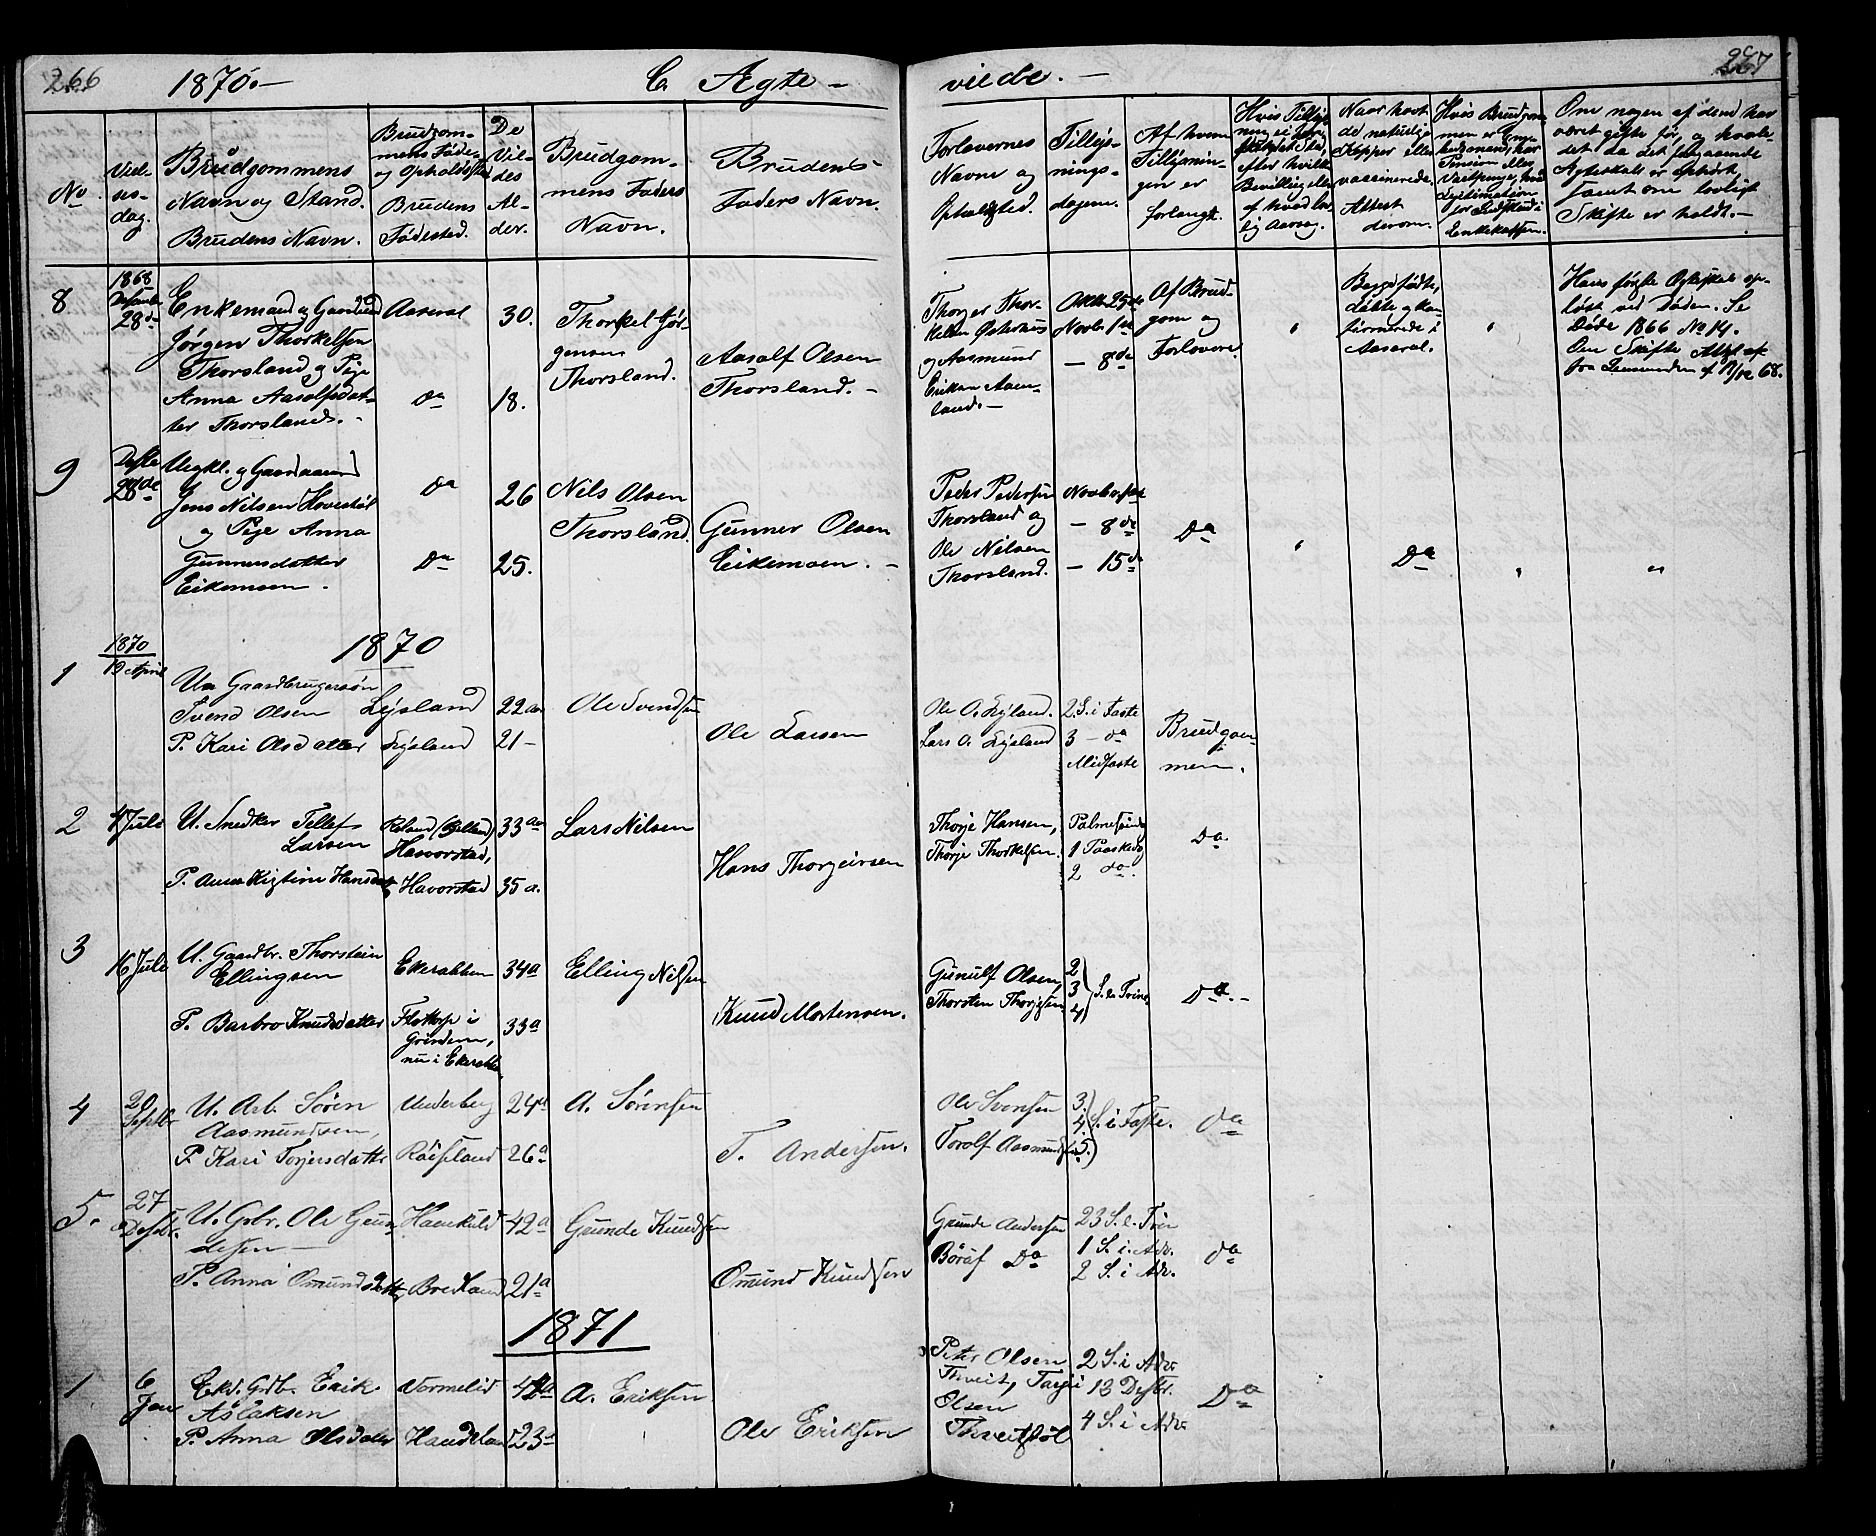 266
1870.-
C. Ægte-
viede.-
267
No
Viel-
ses-
dag.
Brudgommens
Navn og Stand.
Brudens Navn.
Brudgom-
mens Føde-
og Opholdssted
Brudens
Fødested.
De
Vi-
des
Al-
der.
Brudgom-
mens Faders
Navn.
Brudens
Faders Navn.
Forlovernes
Navne og
Opholdsted.
Tillys-
nings-
dagene.
Af hvem
Tillysnin-
gen er
forlangt.
Hvis Tillys-
ning ei
efter hvilken
Bevilling eller
af hvad lov-
lig Aarsag.
Naar havt
de naturlige
Kopper eller
vaccinerede.
Attest
derom.
Hvis Brudgom-
men er
Pension eller
Legitimation
for Indskud i
Enkekassen.
Om nogen af dem har
været gifte før, og hvorle-
des da det foregaaende
Ægteskab er ophørt
samt om lovligt
Skifte er holdt.-
8
1868
28de
Enkemand og Gaardmd
Jørgen Thorkelsen
Thorsland og Pige
Anna Aasolfsdat-
ter Thorsland.-
Aaseral
Do
30.
18.
Thorkel Jør-
gensen
Thorsland.
Aasolf Olsen
Thorsland.-
Thorger Thor-
kelsen
og Aasmund
Eriksen Aasn-
land.-
Oktb 25de
Novbr 1ste
- 8de
Af Brud-
gom og
Forlovere.
"
Begge fødte,
døbte og kon-
firmerede i
Aaseral.
"
Hans første Ægteskab op-
løst ved Døden. Se
Døde 1866 No 14.
Om Skifte Attest af
fra Lensmanden af 12/12 68.
9
28de
Ungkl. og Gaardmand
Jens Nilsen Hovestøl
og Pige Anna
Gunnersdatter
Eikemoen.
Do
Do
26
25.
Nils Olsen
Thorsland.
Gunner Olsen
Eikemoen.-
Peder Pedersen
Thorsland og
Ole Nilsen
Thorsland.
Novbr 1ste
- 8de
- 15de
Do
"
Do
"
"
1870
1
1870
19 April
Un Gaardbrugersøn
Svend Olsen
P. Kari Olsdatter
Lysland
Lysland
22aar
21-
Ole Svendsen
Ole Larsen
Ole O. Lysland.
Lars O. Lysland
2. S. i Faste
3 - do
Midfaste
Brudgom-
men.
2
4 Juli
U. Snedker Tellef
Larsen
P. Anne Kistine Hansdatt
Røland (Bjelland)
Havorstad,
Havorstad
33aar
35a.
Lars Nilsen
Hans Thorgeirsen
Thorje Hansen,
Thorje Thorkelsen.
Palmesøndag
1 Paaskedag
2 do.
Do.
3
16 Juli
U. Gaardbr. Thorstein
Ellingsen
P. Barbro Knudsdatter
Ekerakken
Flottorp i
Grindem,
nu i Ekerakken
34a
33a
Elling Nilsen
Knud Mortensen.
Gunulf Olsen,
Thorsten Thorjesen
2
3
4
S. e. Trin.
Do.-
4
20
Septbr
U. Arb. Søren
Aasmundsen,
P. Kari Torjersdatter
Underberg
Røisland
24a
26a
A. Sørensen
T. Andersen.
Ole Svensen
Torolf Aasmundsen
3
4
5
S. i Faste.
Do
5.
27
Desbr.
U. Gsbr. Ole Grun-
desen
P. Anna Omundsdatter
Haenkild
Bredland
42a
21a
Grunde Knudsen
Omund Knudsen
Grunde Andersen
Børuf Do
23 S. e. Trin
1 S. i. Adv.
2 S. i Adv.
Do
1871
1
6
Jan
Ekd. Grdb. Erik
Aslaksen
P. Anna Olsdatter
Vormelid
Haudeland
23a
A. Eriksen
Ole Eriksen
Peter Olsen
Thveit, Tarjei
Olsen
Thveitstøl
2 S. i Adv.
13 Desbr.
4 S. i Adv.
Do